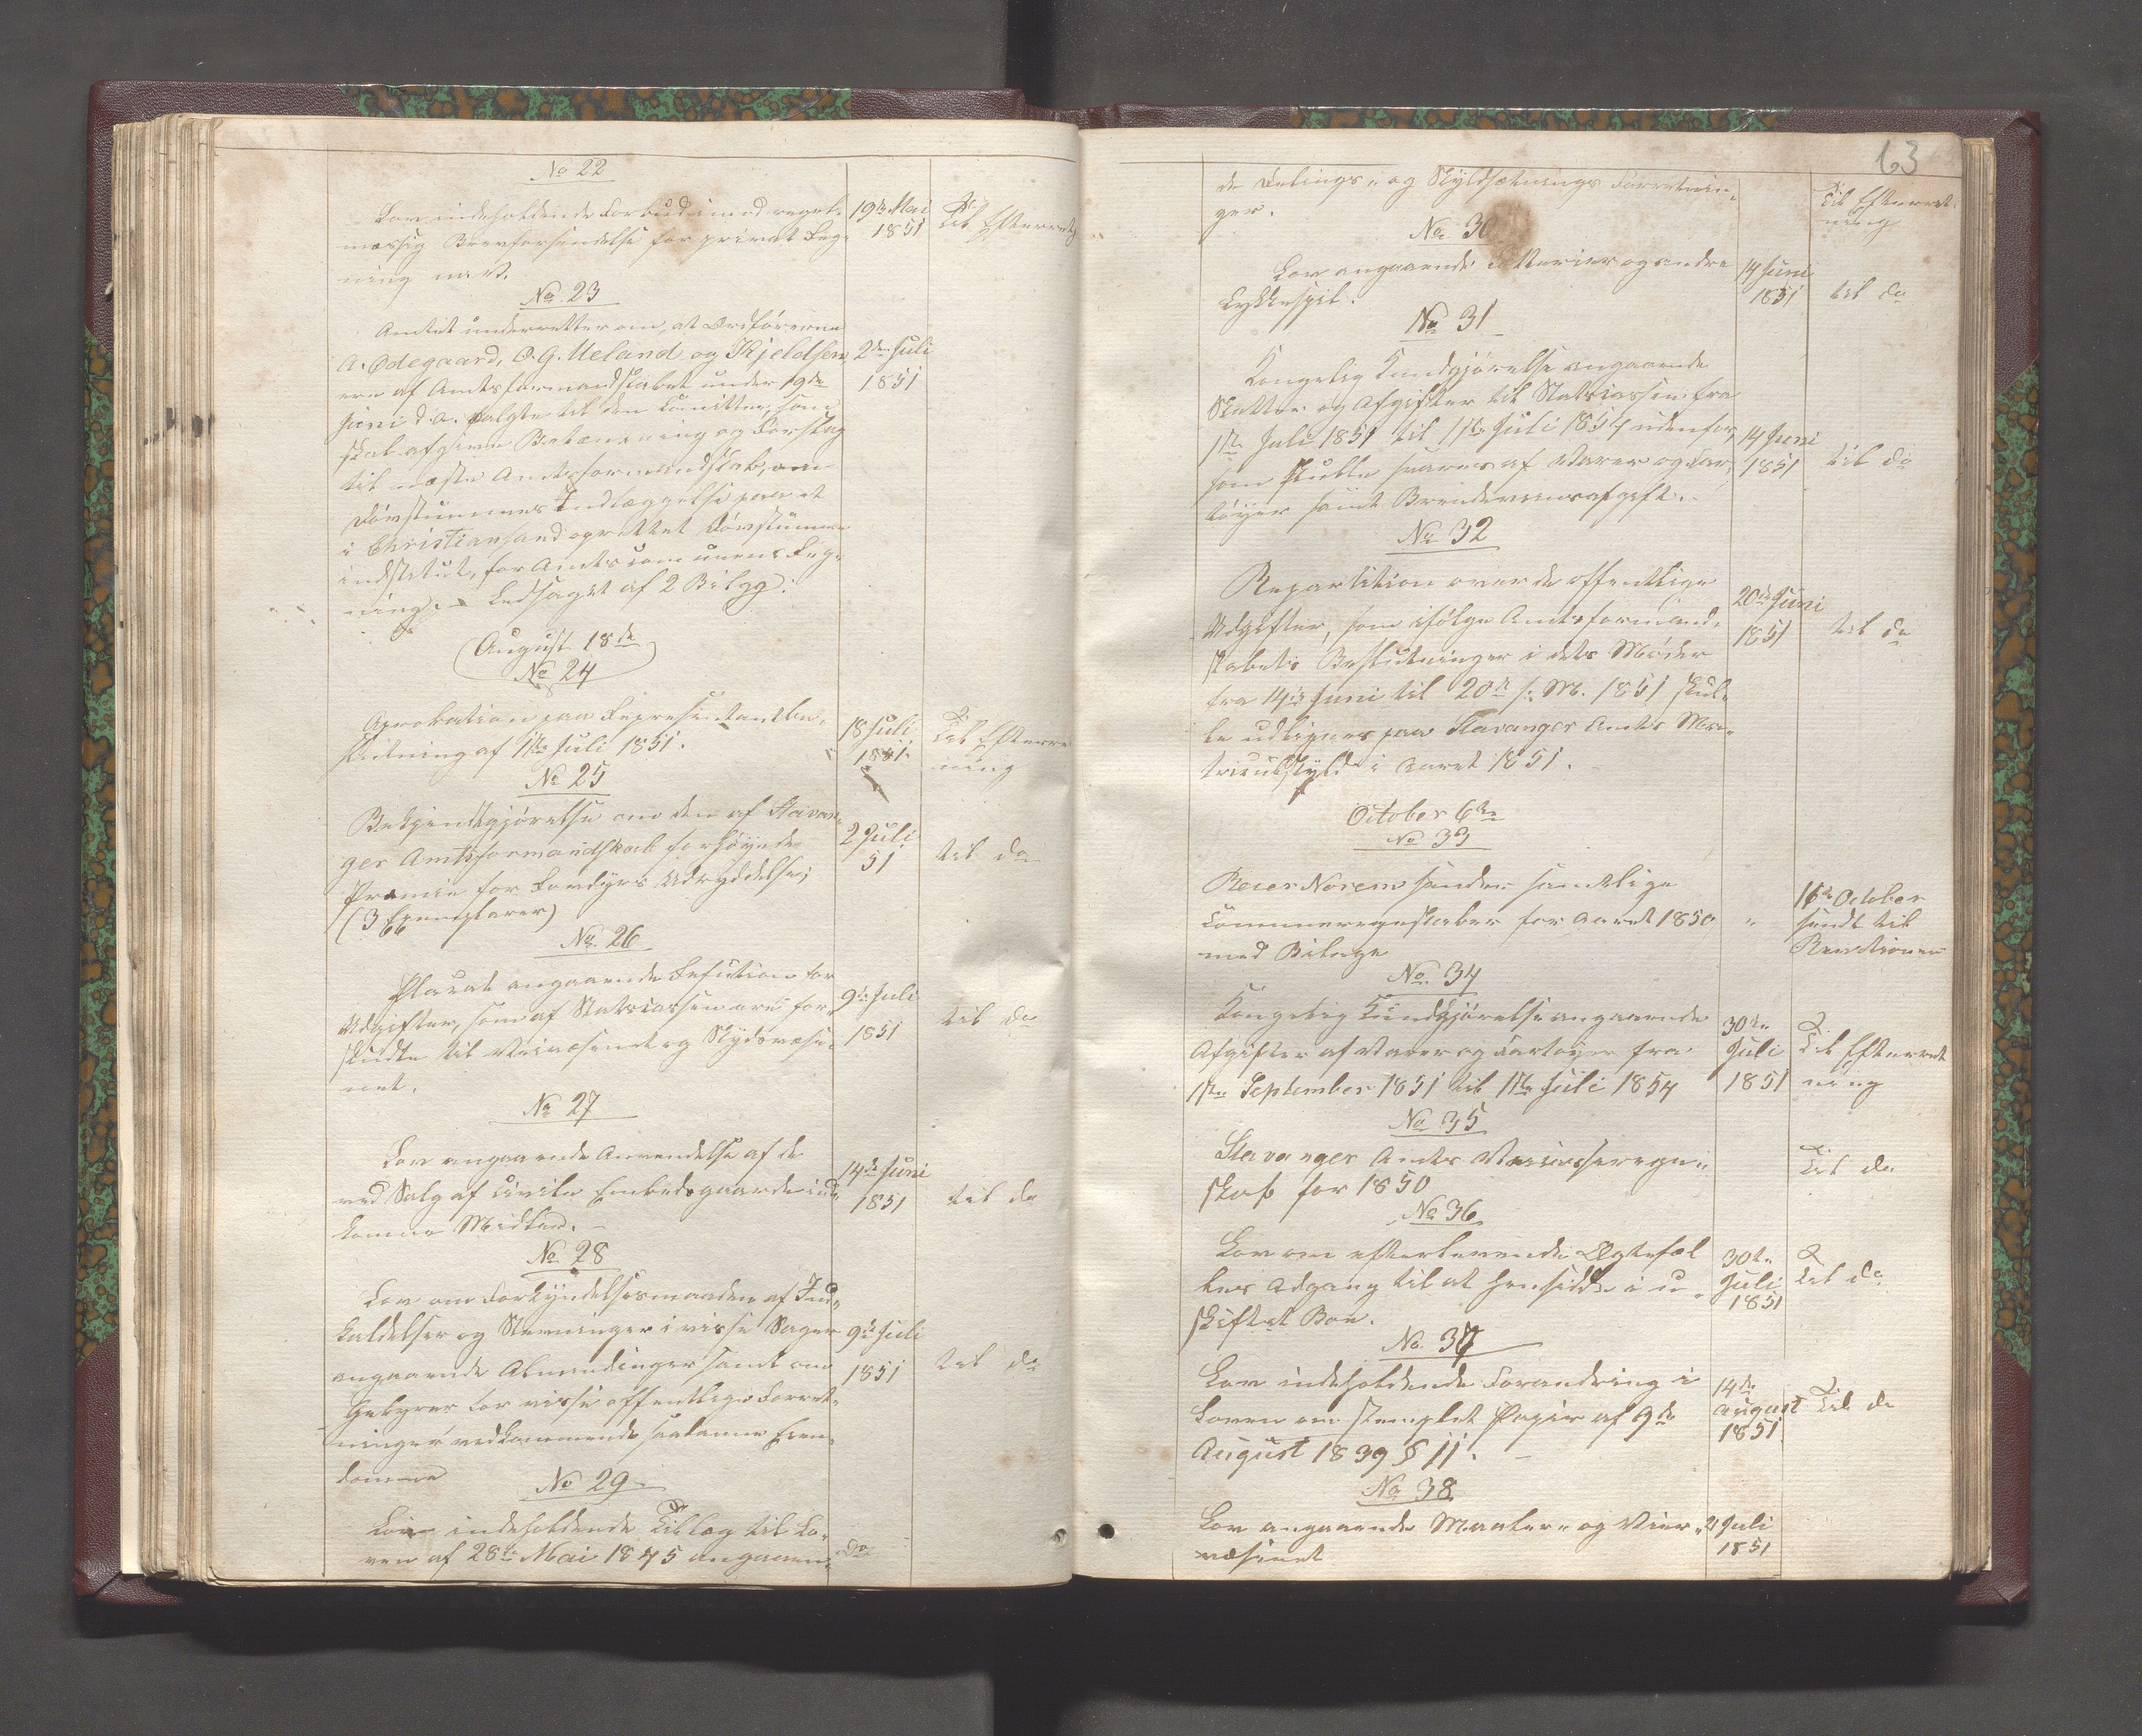 No 22
Lov indeholdende Forbud imod regel-
mæssig Brevforsendelse for privat Reg-
ning m. v.
19de Mai
1851
Til Efterretn
No 23
Amtet underretter om, at Ordførerne
A. Ødegaard, O. G. Ueland og Kjeldsen
ere af Amtsformandskabet under 19de
Juni d. A. valgte til den Comittee, som
skal afgive Betænkning og Forslag
til næste Amtsformandskab, om
Døvstummes Indlæggelse paa et
i Christiansand oprettet Døvstumme
institut, for Amtscommunens Reg-
ning. - Ledsaget af 2 Bilag:
2den Juli
1851
August 18de
No 24
Aprobation paa Repræsentantbe-
slutning af 11te Juli 1851.
18 Juli
1851
Til Efterre
ning
No 25
Bekjendtgjørelse om den af Stavan-
ger Amtsformandskab forhøiede
Præmie for Rovdyrs Udryddelse;
(3 Exemplarer)
2 Juli
51
til do
No. 26
Placat angaaende Refution for
Udgifter, som af Statscassen ere for-
skudte til Veivæsenet og Skydsvæse-
net.
9de Juli
1851
til do
No 27
Lov angaaende Anvendelse af de
ved Salg af civile Embedsgaarde ind-
komne Midler. -
14de Juni
1851
til do
No 28
Lov om Forkyndelsesmaaden af Ind-
kaldelser og Stevninger i visse Sager
angaaende Almendinger samt om
Gebyrer for visse offentlige Forret-
ninger vedkommende saadanne Eien-
domme
9de Juli
1851
til do
No 29
Lov indeholdende Tillæg til Lo-
ven af 28de Mai 1845 angaaen-
Do
63
de Delings- og Skyldsætnings Forretnin-
ger.
Til Efterret-
ning
No 30
Lov angaaende Lotterier og andre
Lykkespil.
14 Juni
1851
til do
No 31
Kongelig Kundgjørelse angaaende
Skatter og Afgifter til Statscassen fra
1ste Juli 1851 til 1ste Juli 1854 udenfor,
som skulle svares af Varer og Far-
tøyer samt Brendeviinsafgift. -
14 Juni
1851
til do
No 32
Repartition over de offentlige
Udgifter, som ifølge Amtsformand-
skabets Beslutninger i dets Møder
fra 14de Juni til 20de s: M. 1851 skul-
le udlignes paa Stavanger Amts Ma-
triculskyld i Aaret 1851.
20de Juni
1851
til do
October 6te
No 33
Reier Norem sender samtlige
Communeregnskaber for Aaret 1850
med Bilage
"
16de October
sendt til
Revisionen
No. 34
Kongelig Kundgjørelse angaaende
Afgifter af Varer og Fartøyer fra
1ste September 1851 til 1ste Juli 1854
30te
Juli
1851
Til Efterret
ning
No 35
Stavanger Amts Veicasseregn-
skab for 1850
Til do
No 36
Lov om efterlevende Ægtefæl
lers Adgang til at hensidde i u-
skiftet Boe.
30te
Juli
1851
Til do
No. 37
Lov indeholdende Forandring i
Loven om stemplet Papir af 9de
August 1839 § 11. -
14de
August
1851
Til do
No 38
Lov angaaende Maaler- og Veier-
væsenet
21 Juli
1851